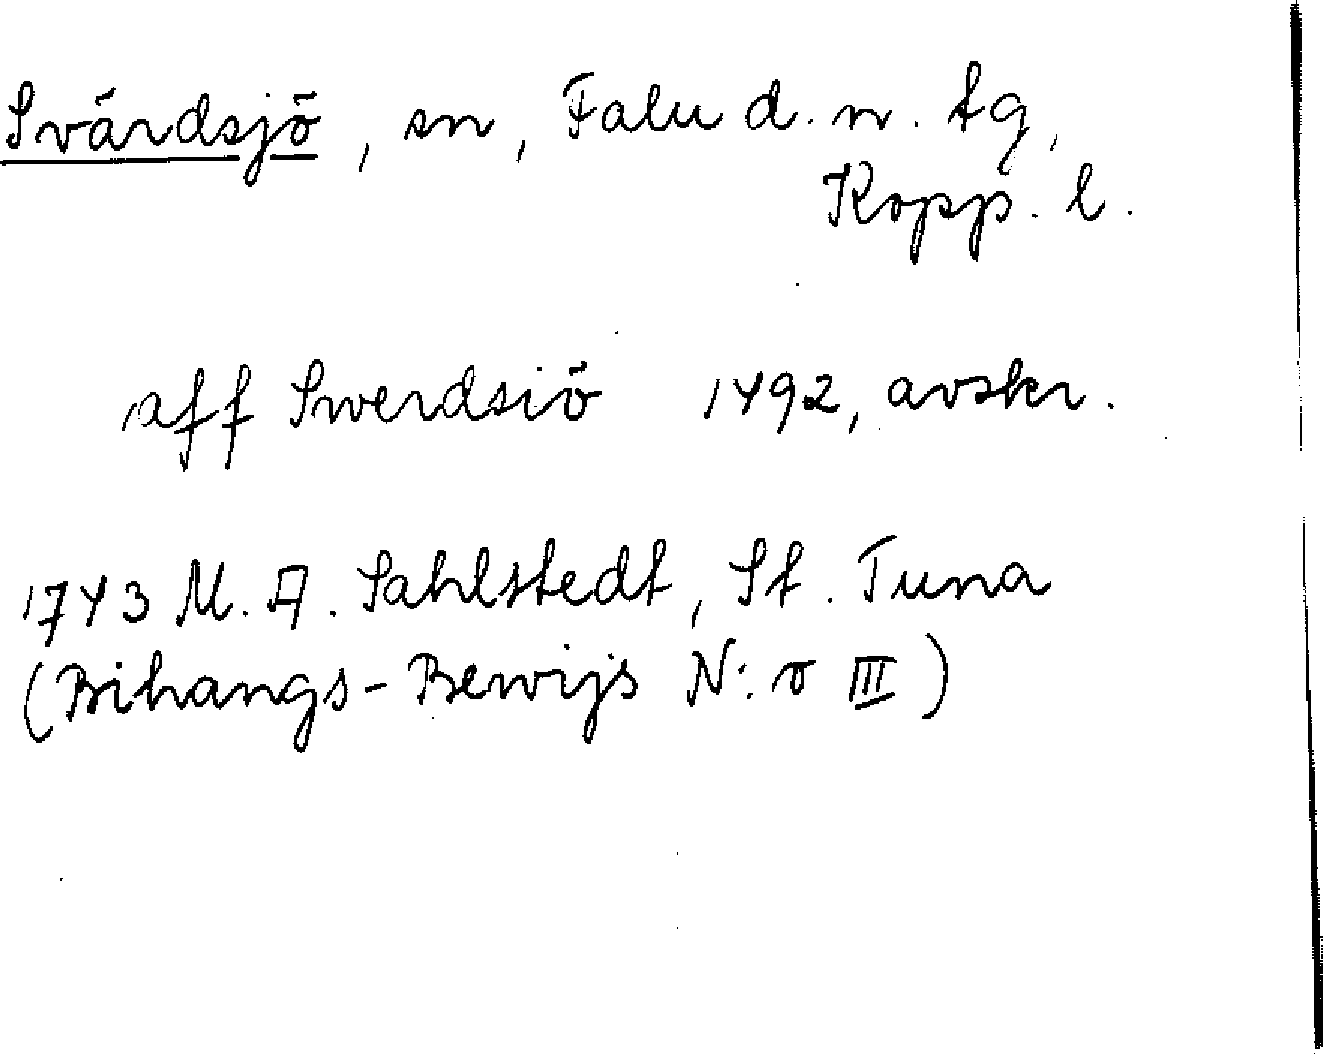 Svärdsjö, sn, Falu d. n. tg,
Kopp. l.
aff Swerdsiö 1492, avskr.
1743 M. A. Sahlstedt, St. Tuna
(Bihangs-Bewijs N:o III)